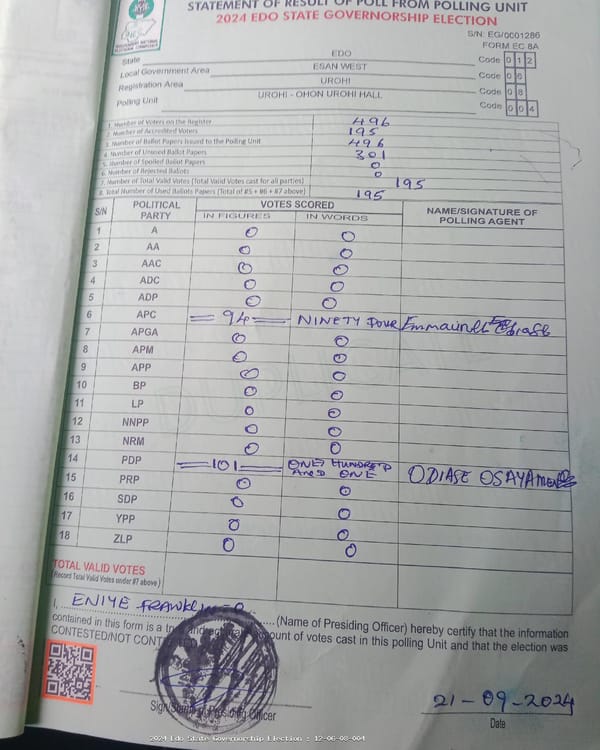 STATEMENT OF RESULT OF POLL FROM POLLING UNIT
2024 EDO STATE GOVERNORSHIP ELECTION
S/N: EG/0001286
FORM EC 8A
State EDO Code 0 1 2
Local Government Area ESAN WEST Code 0 6
Registration Area UROHI Code 0 8
Polling Unit UROHI - OHON UROHI HALL Code 0 0 4
1. Number of Voters on the Register 496
2. Number of Accredited Voters 195
3. Number of Ballot Papers Issued to the Polling Unit 496
4. Number of Unused Ballot Papers 301
5. Number of Spoiled Ballot Papers 0
6. Number of Rejected Ballots 0
7. Number of Total Valid Votes (Total Valid Votes cast for all parties) 195
8. Total Number of Used Ballots Papers (Total of #5 + #6 + #7 above) 195
S/N POLITICAL PARTY VOTES SCORED NAME/SIGNATURE OF POLLING AGENT
IN FIGURES IN WORDS
1 A 0 0
2 AA 0 0
3 AAC 0 0
4 ADC 0 0
5 ADP 0 0
6 APC 94 NINETY FOUR
7 APGA 0 0
8 APM 0 0
9 APP 0 0
10 BP 0 0
11 LP 0 0
12 NNPP 0 0
13 NRM 0 0
14 PDP 101 ONE HUNDRED AND ONE ODIASE
15 PRP 0 0
16 SDP 0 0
17 YPP 0 0
18 ZLP 0 0
TOTAL VALID VOTES
(Record Total Valid Votes under #7 above)
I, ENIYE FRANKLIN (Name of Presiding Officer) hereby certify that the information
contained in this form is a true and account of votes cast in this polling Unit and that the election was
CONTESTED/NOT
Presiding Officer
21-09-2024
Date
2024 Edo State Governorship Election : 12-06-08-004